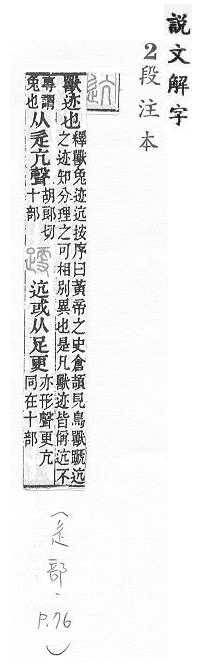 說文解字
2段注本
迒
獸迹也釋獸兔迹迒按序曰黃帝之史倉頡見鳥獸蹏迒
之迹知分理之可相別異也是凡獸迹皆偁迒不
專謂
兔也从辵亢聲胡郎切
十部
迒或从足更亦形聲更亢
同在十部
(辵部. P.76)